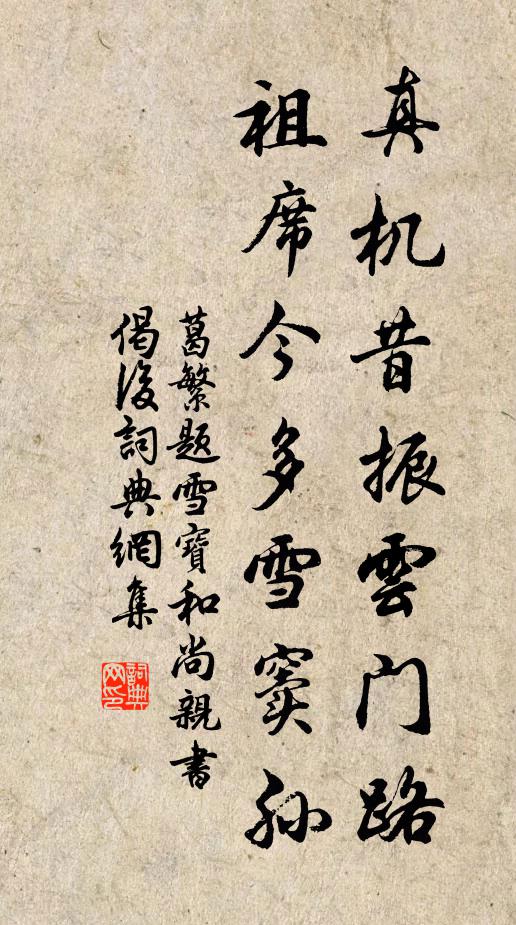 真机昔振雲门路
祖席今多雪窦孙
葛繁题雪寶和尚親書
偈後詞典網集
詞典网印